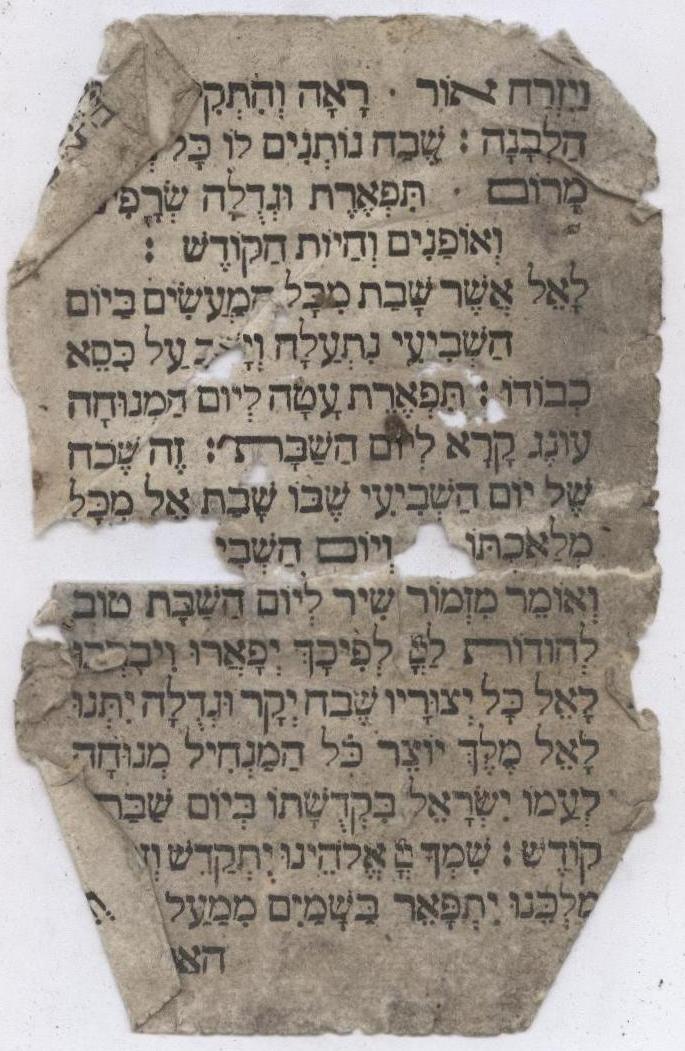 וַיִּזְרַח אוֹר · רָאָה וְהִתְקִ
הַלְּבָנָה : שֶׁבַח נוֹתְנִים לוֹ כָּל
מָרוֹם · תִּפְאֶרֶת וּגְדֻלָּה שְׂרָפִים
וְאוֹפַנִּים וְחַיּוֹת הַקּוֹדֶשׁ :
לָאֵל אֲשֶׁר שָׁבַת מִכָּל הַמַּעֲשִׂים בַּיּוֹם
הַשְּׁבִיעִי נִתְעַלָּה וְיָשַׁב עַל כִּסֵּא
כְבוֹדוֹ : תִּפְאֶרֶת עָטָה לְיוֹם הַמְּנוּחָה
עוֹנֶג קָרָא לְיוֹם הַשַּׁבָּת : זֶה שֶׁבַח
שֶׁל יוֹם הַשְּׁבִיעִי שֶׁבּוֹ שָׁבַת אֵל מִכָּל
מְלַאכְתּוֹ וְיוֹם הַשְּׁבִי
וְאוֹמֵר מִזְמוֹר שִׁיר לְיוֹם הַשַּׁבָּת טוֹב
לְהוֹדוֹת לַיְיָ לְפִיכָךְ יְפָאֲרוּ וִיבָרְכוּ
לָאֵל כָּל יְצוּרָיו שֶׁבַח יְקָר וּגְדֻלָּה יִתְּנוּ
לָאֵל מֶלֶךְ יוֹצֵר כֹּל הַמַּנְחִיל מְנוּחָה
לְעַמּוֹ יִשְׂרָאֵל בִּקְדֻשָּׁתוֹ בְּיוֹם שַׁבַּת
קוֹדֶשׁ : שִׁמְךָ יְיָ אֱלֹהֵינוּ יִתְקַדֵּשׁ וְזִ
מַלְכֵּנוּ יִתְפָּאֵר בַּשָּׁמַיִם מִמַּעַל
הא